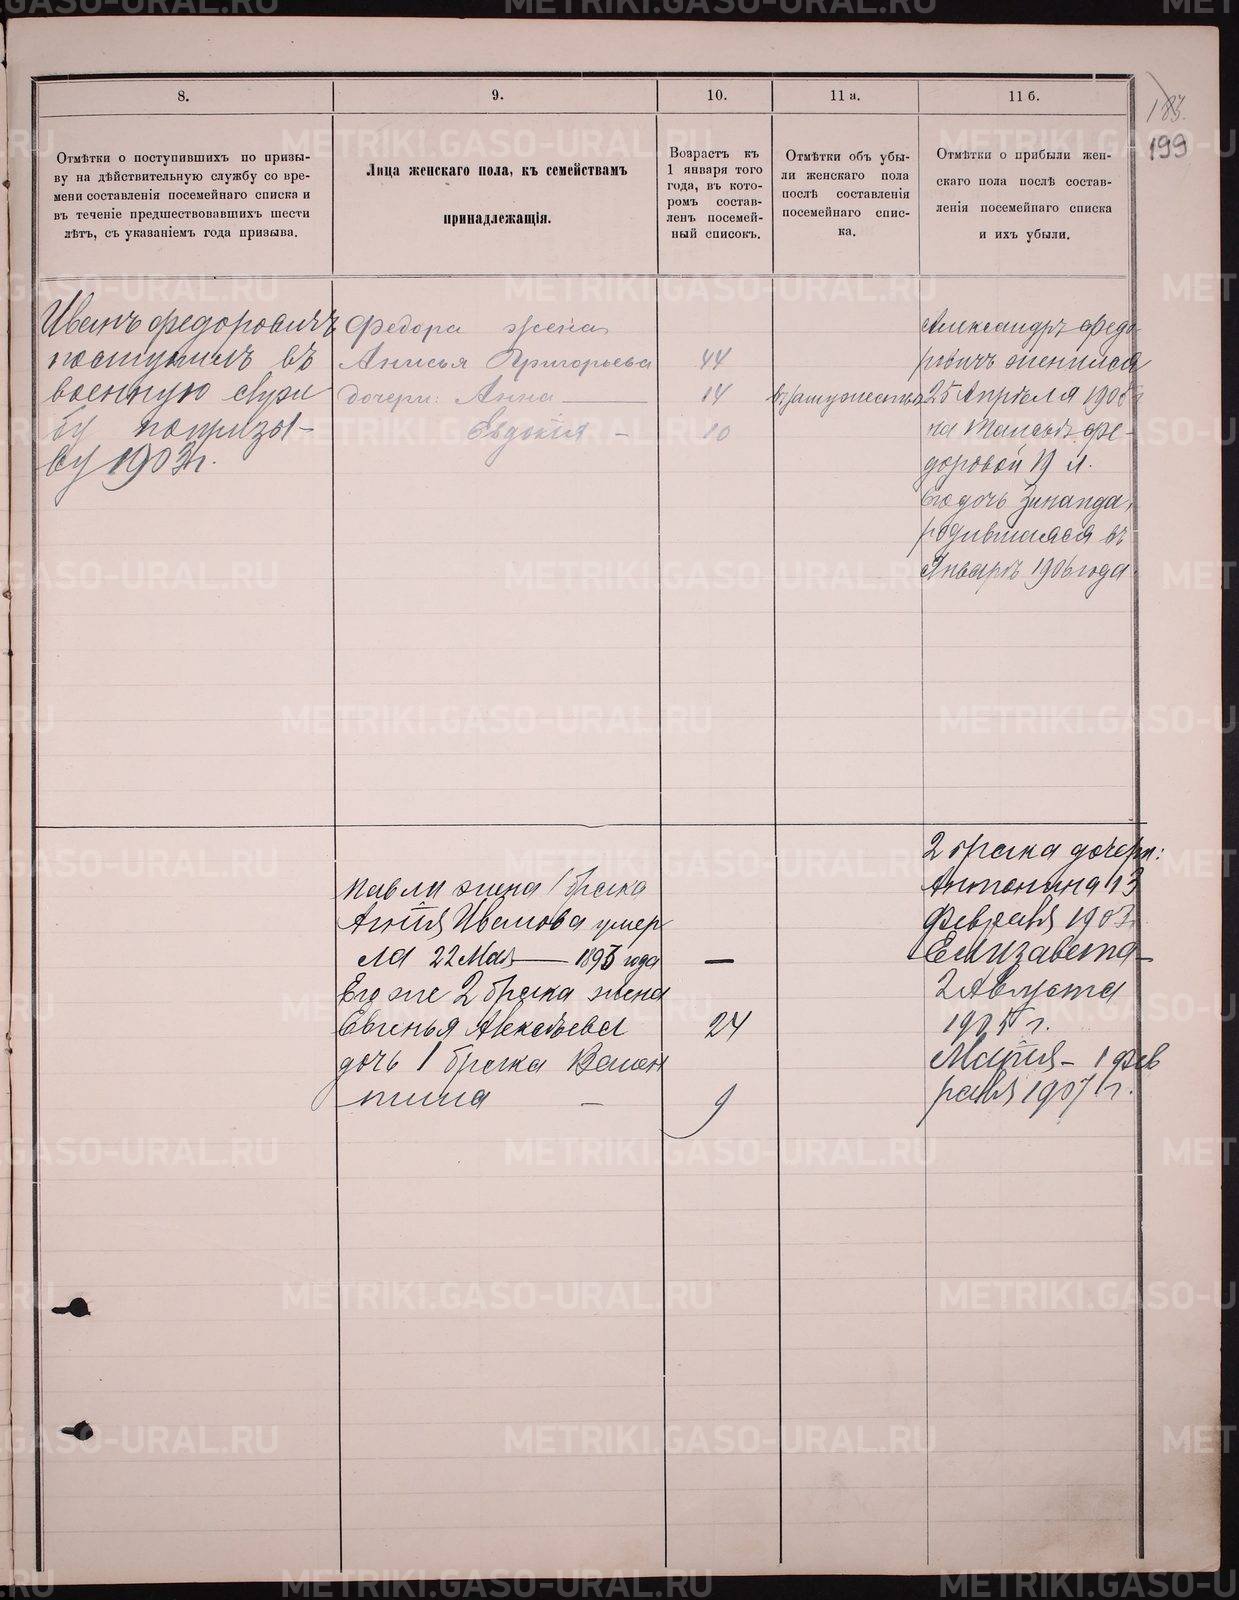 8.
9.
10.
11 а.
11 б.
183.
199
Отмѣтки о поступившихъ по призы-
ву на дѣйствительную службу со вре-
мени составленія посемейнаго списка и
въ теченіе предшествовавшихъ шести
лѣтъ, съ указаніемъ года призыва.
Лица женскаго пола, къ семействамъ
принадлежащія.
Возрастъ къ
1 января того
года, въ кото-
ромъ состав-
ленъ посемей-
ный списокъ.
Отмѣтки объ убы-
ли женскаго пола
послѣ составленія
посемейнаго спис-
ка.
Отмѣтки о прибыли жен-
скаго пола послѣ состав-
ленія посемейнаго списка
и ихъ убыли.
Иванъ Федоровичъ
поступилъ въ
военную служ
бу по призы-
ву 1903 г.
Федора жена
Анисья Григорьева 44
дочери: Анна — 14
Евдокія - 10
въ замужествѣ
Александръ Федо-
ровичъ женился
25 Апрѣля 1905 г
на Федоровой 19 л.
Его дочь Зинаида,
родившаяся въ
Январѣ 1906 года
Павла жена 1 брака
Агнія Иванова умер
ла 22 Мая — 1893 года —
Его же 2 брака жена
Евгенья Алексѣева 24
дочь 1 брака Вален
тина — 9
2 брака дочери:
Антонина 13
Февраля 1903
Елизавета —
2 Августа
1905 г.
Марія — 1 Фев
раля 1907 г.
METRIKI.GASO-URAL.RU